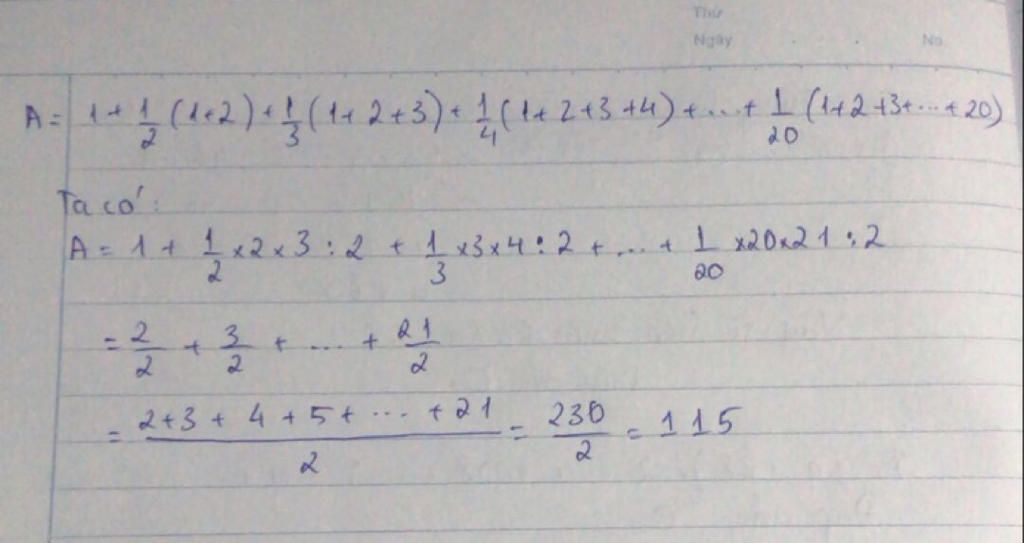 Thứ
Ngày . . No
A = 1 + 1/2 (1+2) + 1/3 (1+2+3) + 1/4 (1+2+3+4) + ... + 1/20 (1+2+3+...+20)
Ta có:
A = 1 + 1/2 x 2 x 3 : 2 + 1/3 x 3 x 4 : 2 + ... + 1/20 x 20 x 21 : 2
= 2/2 + 3/2 + ... + 21/2
= (2+3+4+5+...+21)/2 = 230/2 = 115